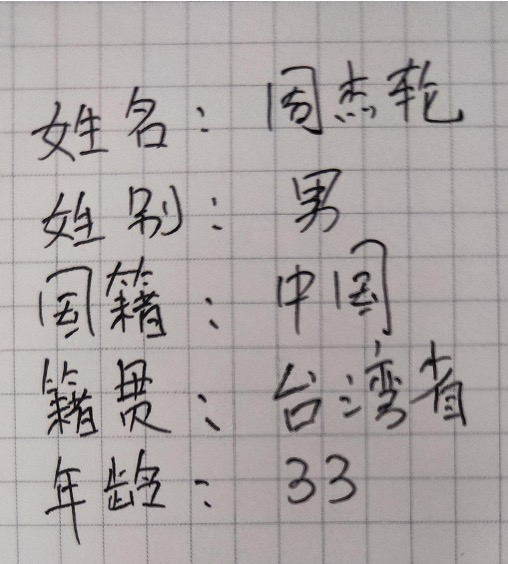 姓名：周杰乾
姓别：男
国籍：中国
籍贯：台湾省
年龄：33